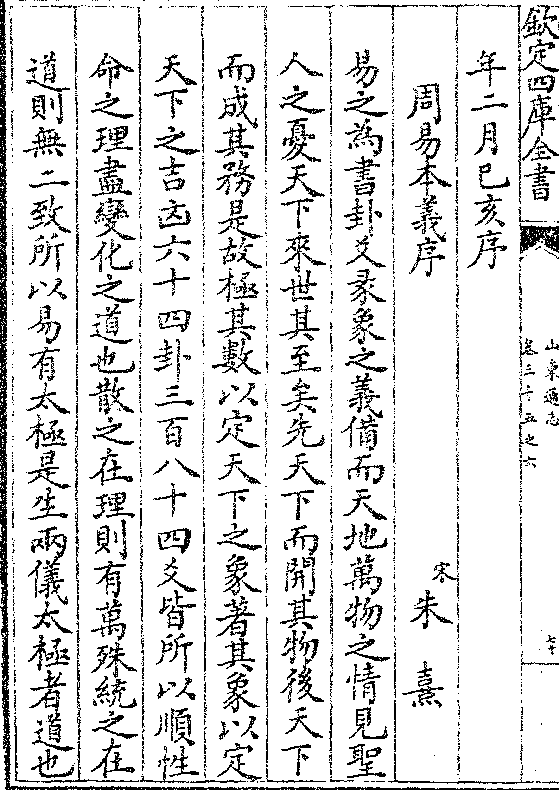 欽定四庫全書
山東通志
卷三十五之六
七十
年二月已亥序
周易本義序
宋
朱熹
易之為書卦爻彖象之義備而天地萬物之情見聖
人之憂天下來世其至矣先天下而開其物後天下
而成其務是故極其數以定天下之象著其象以定
天下之吉凶六十四卦三百八十四爻皆所以順性
命之理盡變化之道也散之在理則有萬殊統之在
道則無二致所以易有太極是生兩儀太極者道也